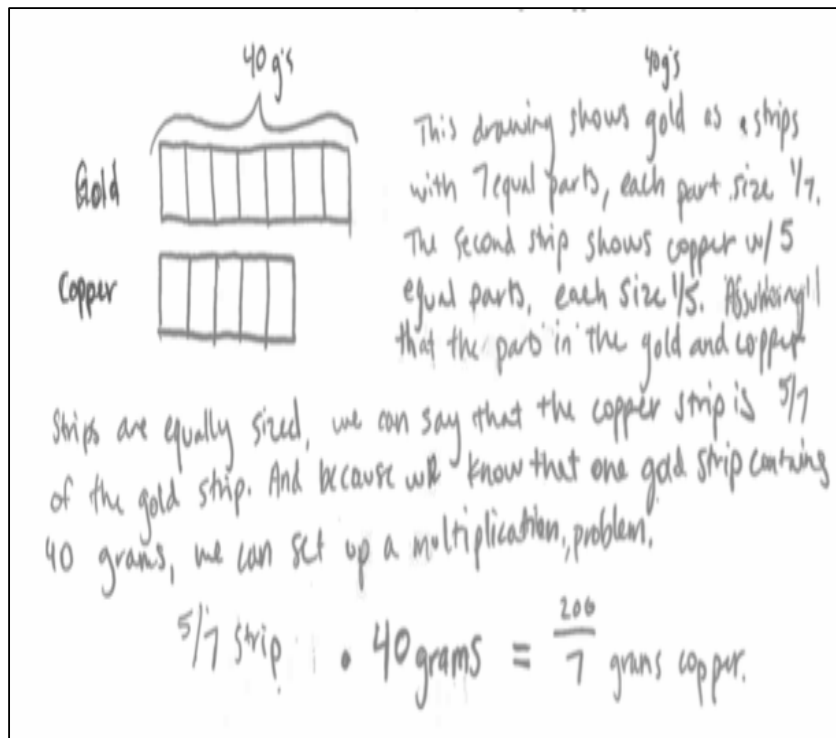 40 g's
Gold
Copper
40g's
This drawing shows gold as a strips
with 7 equal parts, each part size 1/7.
The second strip shows copper w/ 5
equal parts, each size 1/5. Assuming
that the parts in the gold and copper
strips are equally sized, we can say that the copper strip is 5/7
of the gold strip. And because we know that one gold strip contains
40 grams, we can set up a multiplication, problem.
5/7 strip • 40 grams = 200/7 grams copper.